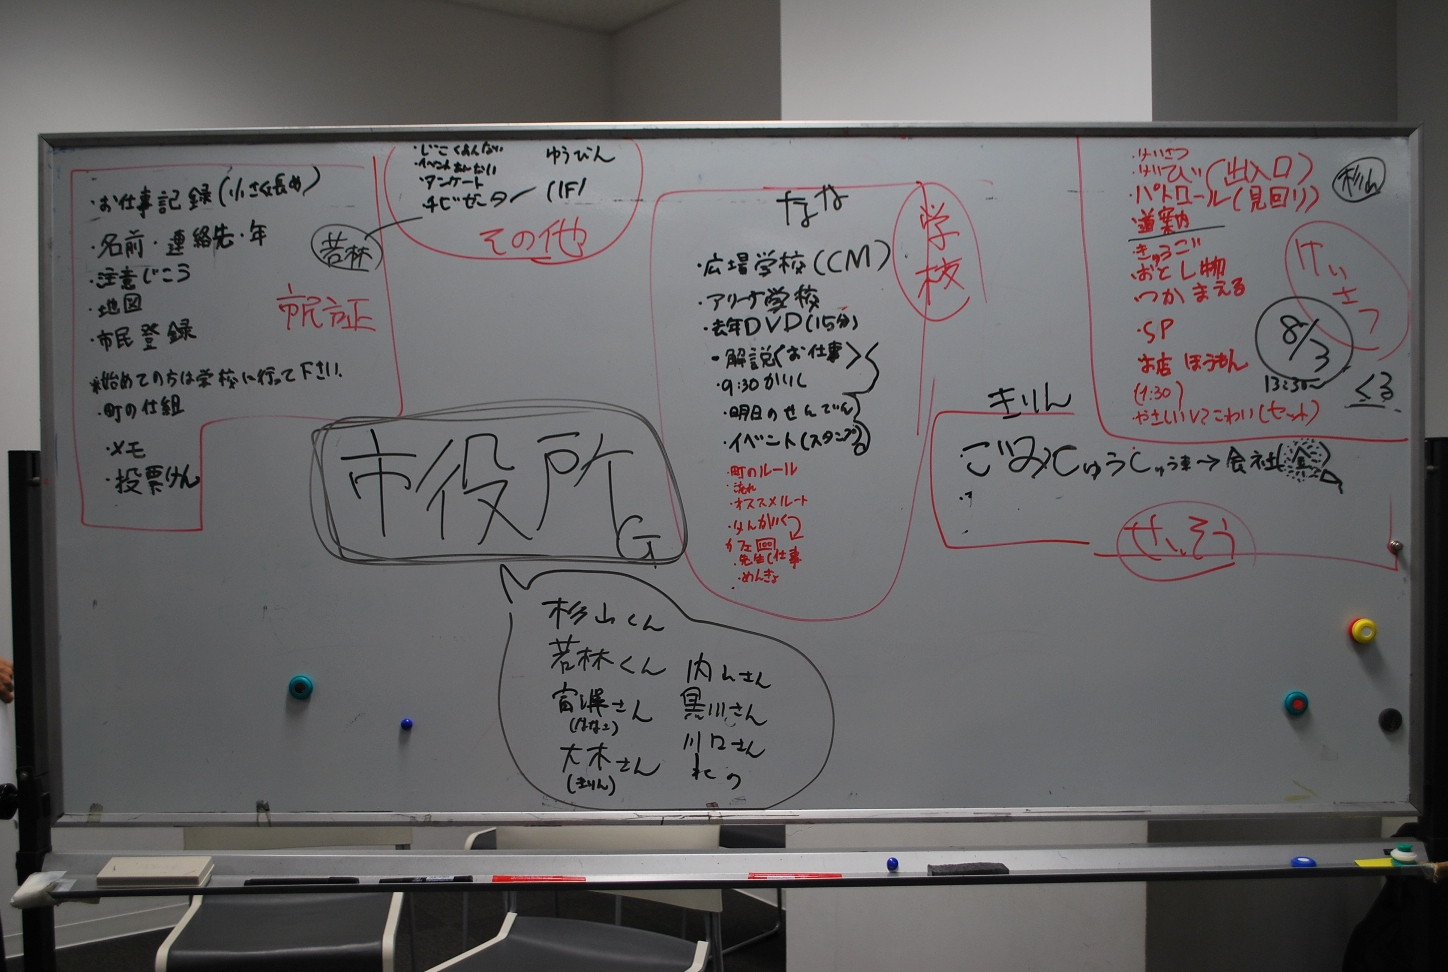 ・お仕事記録(小さく長め)
・名前・連絡先・年
・注意じこう
・地図
・市民登録
※始めての方は学校に行って下さい。
・町の仕組
・メモ
・投票けん
市民証
若林
・アンケート
ゆうびん
(1F)
その他
市役所
G
杉山くん
若林くん
富澤さん
(ななこ)
大木さん
(きりん)
黒川さん
川口さん
なな
・広場学校(CM)
・アリーナ学校
・去年DVD(15分)
・解説〈お仕事〉
・9:30かいし
・明日のせんでん
・イベント(スタンプ)
・町のルール
・流れ
・オススメルート
・けんがく
・先生し仕事
・めんきょ
学校
・けいさつ
・けいび(出入口)
・パトロール(見回り)
・道案内
・きゅうご
・おとし物
・つかまえる
・SP
・お店ほうもん
(1:30)
やさしい⇔こわい(セット)
杉山
けいさつ
8/3
13:30~
くる
きりん
・ごみしゅうしゅう車→会社(金)
せいそう